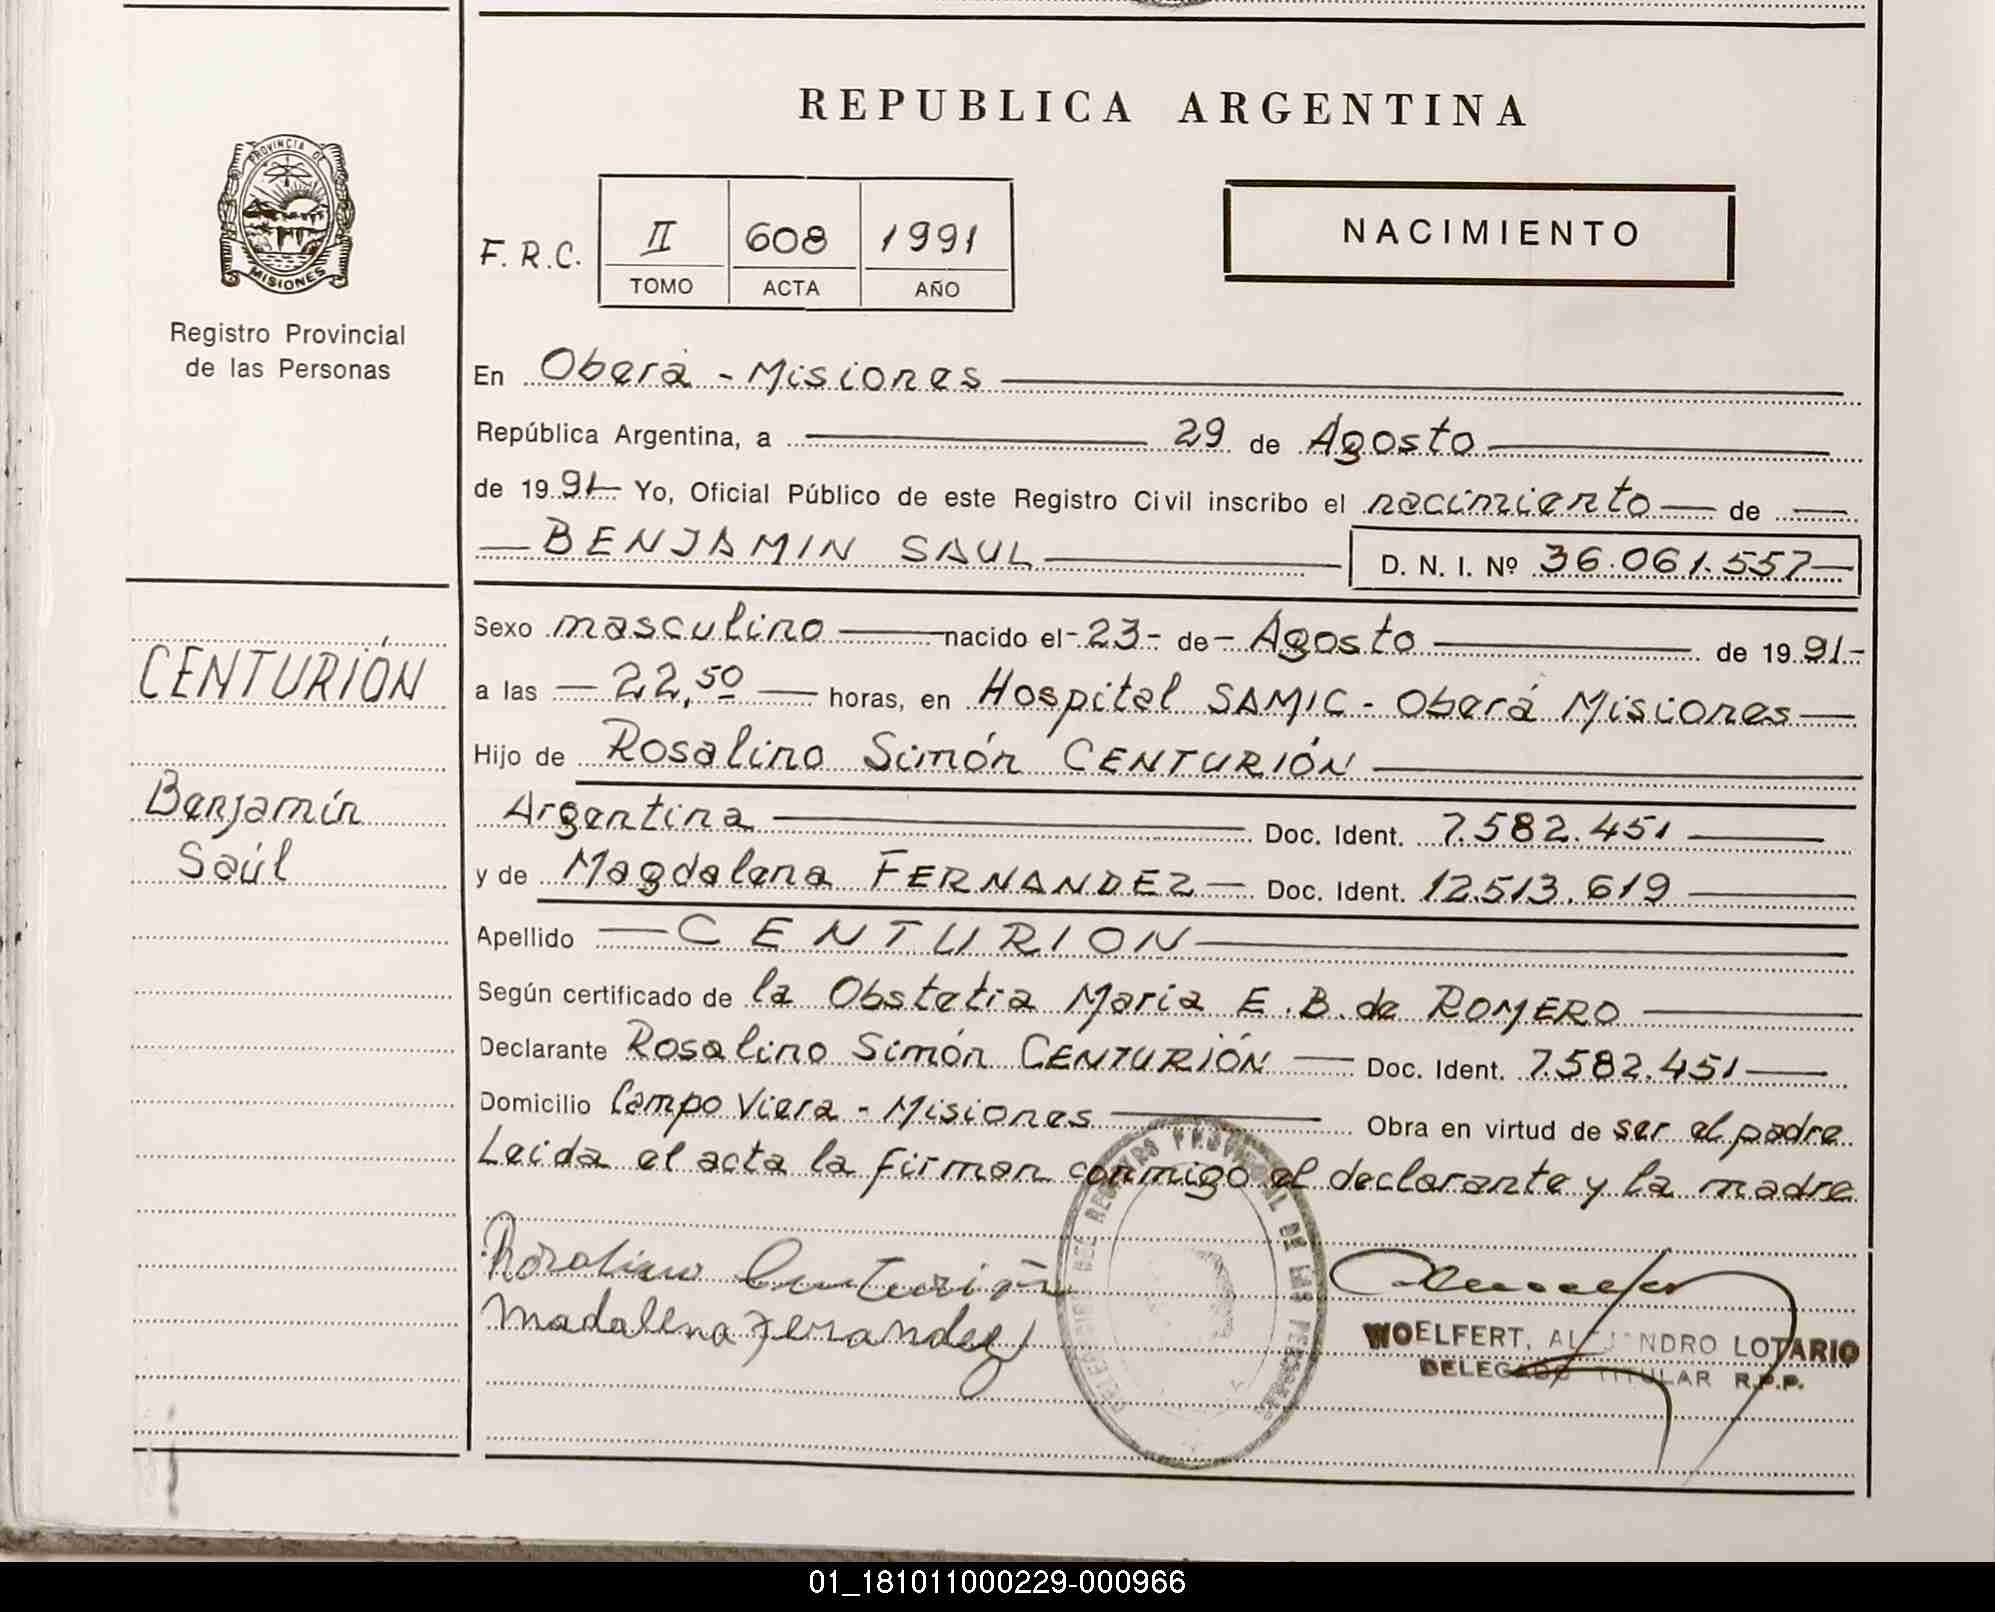 REPUBLICA ARGENTINA
PROVINCIA DE
MISIONES
Registro Provincial
de las Personas
F. R. C.
II 608 1991
TOMO ACTA AÑO
NACIMIENTO
En Oberá - Misiones
República Argentina, a 29 de Agosto
de 1991 Yo, Oficial Público de este Registro Civil inscribo el nacimiento de
BENJAMIN SAUL D. N. I. Nº 36.061.557
Sexo masculino nacido el - 23 - de - Agosto de 1991 -
a las - 22,50 horas, en Hospital SAMIC - Oberá Misiones
Hijo de Rosalino Simón CENTURIÓN
Argentina Doc. Ident. 7.582.451
y de Magdalena FERNANDEZ Doc. Ident. 12.513.619
Apellido CENTURION
Según certificado de la Obstetia Maria E. B. de ROMERO
Declarante Rosalino Simón CENTURIÓN Doc. Ident. 7.582.451
Domicilio Campo Viera - Misiones Obra en virtud de ser el padre
Leida el acta la firman conmigo el declarante y la madre
CENTURIÓN
Benjamín
Saúl
Rosalino Centurión
Madalena Ferandez
REGISTRO PROVINCIAL DE LAS PERSONAS
WOELFERT, ALEJANDRO LOTARIO
DELEGADO TITULAR R.P.P.
01_181011000229-000966